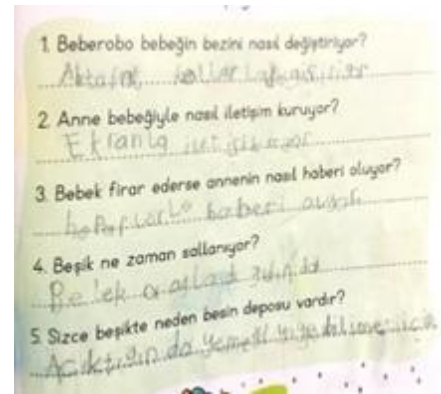 1. Beberobo bebeğin bezini nasıl değiştiriyor?
kollar
2. Anne bebeğiyle nasıl iletişim kuruyor?
Ekranla
3. Bebek firar ederse annenin nasıl haberi oluyor?
haberi oluyor
4. Beşik ne zaman sallanıyor?
Bebek
5. Sizce beşikte neden besin deposu vardır?
Acıktığında yemek yiyebilmesi için